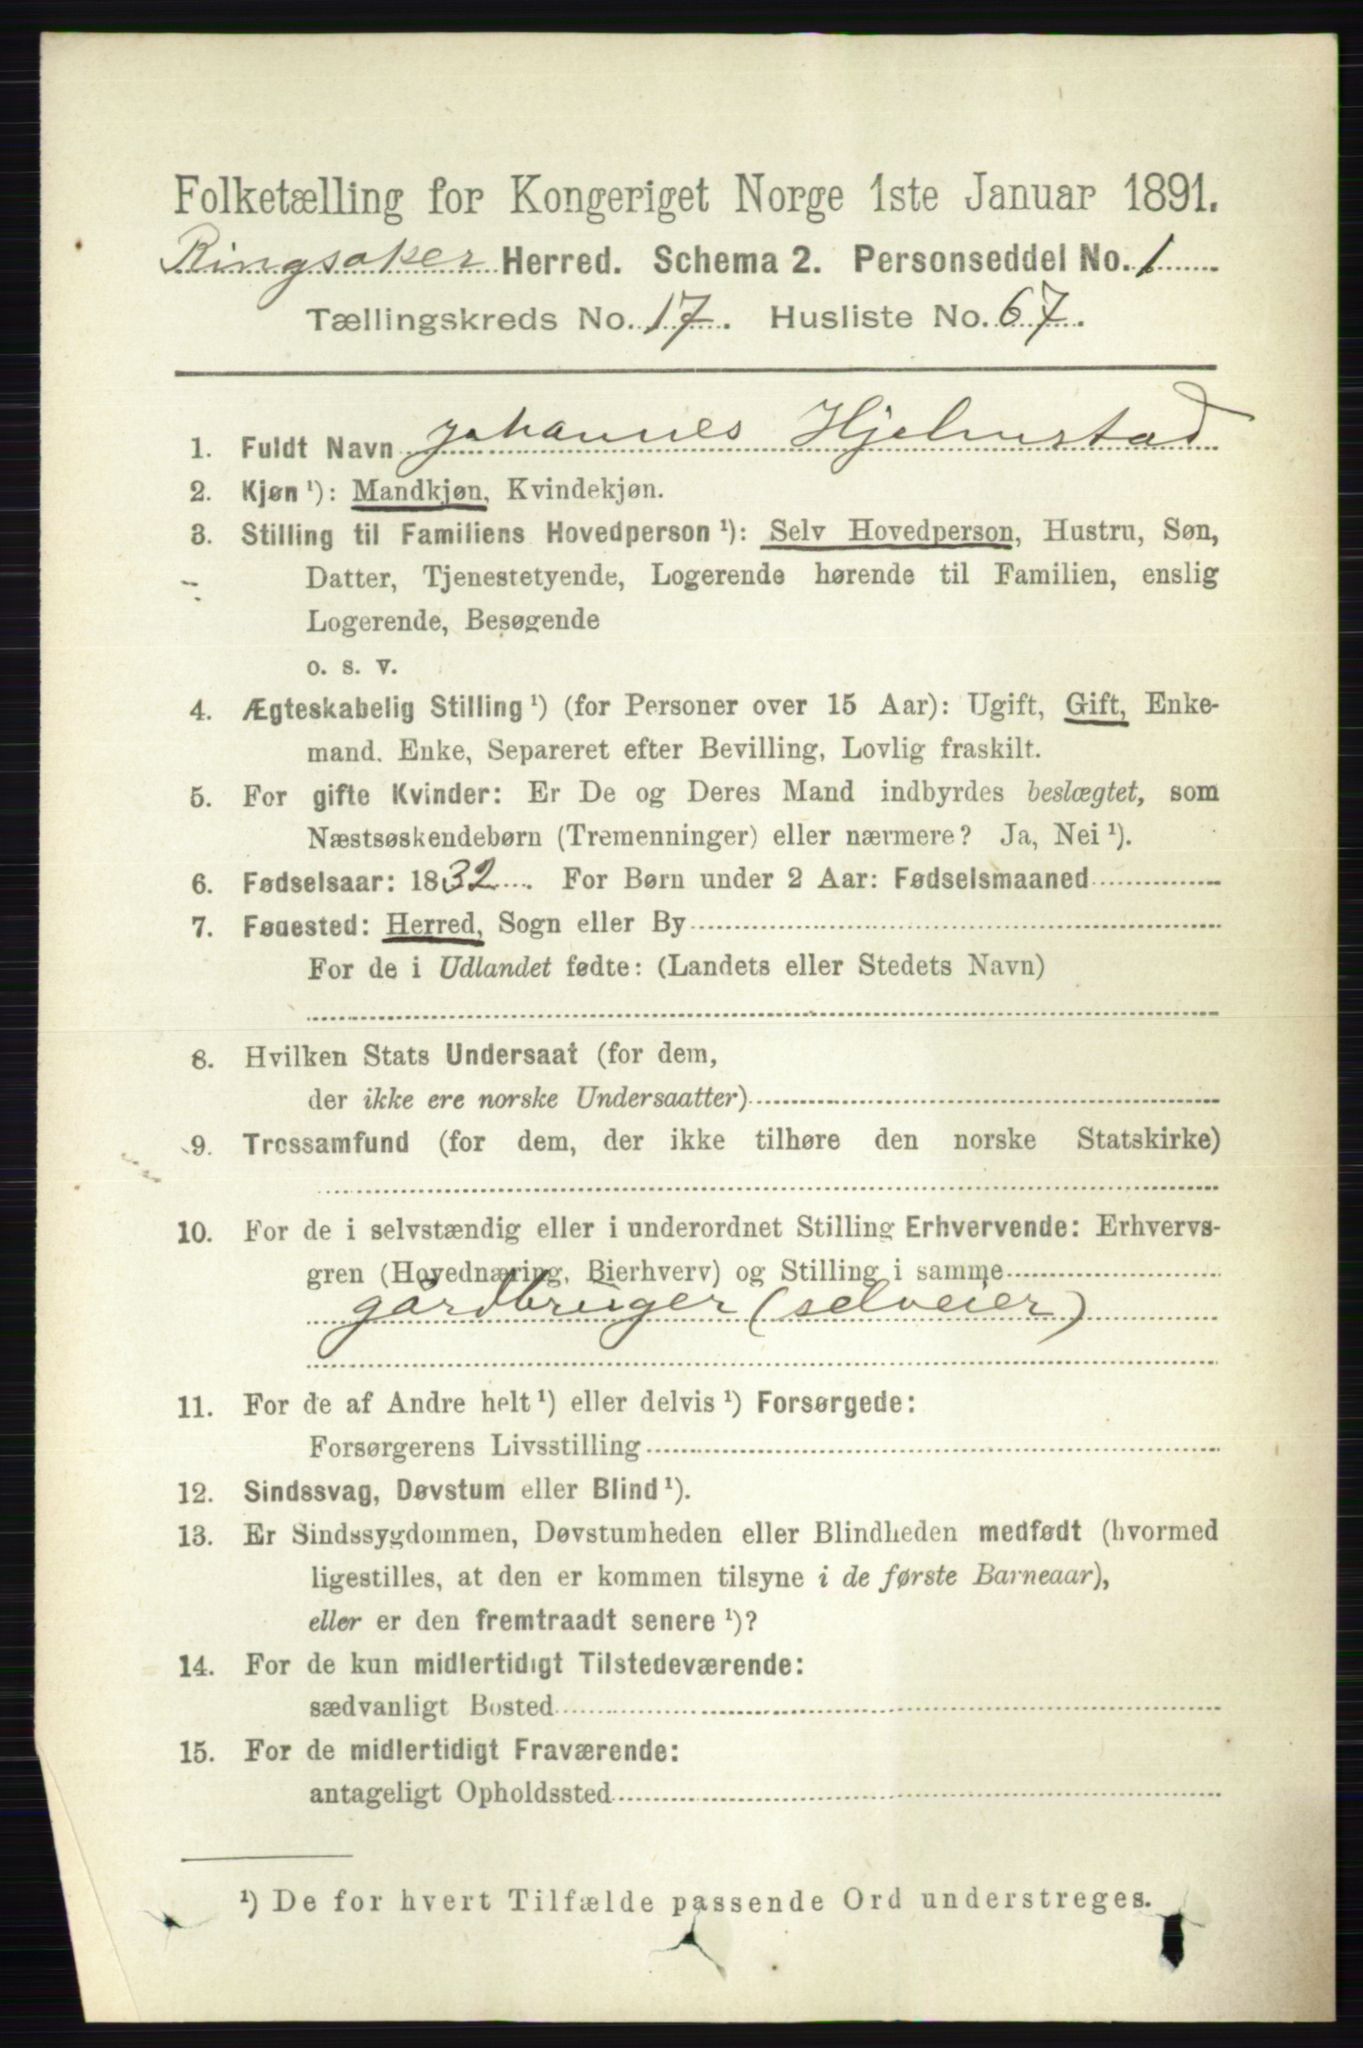 Folketælling for Kongeriget Norge 1ste Januar 1891.
Ringsaker Herred. Schema 2. Personseddel No. 1
Tællingskreds No. 17. Husliste No. 67.
1. Fuldt Navn Johannes Hjelmstad
2. Kjøn ¹): Mandkjøn, Kvindekjøn.
3. Stilling til Familiens Hovedperson ¹): Selv Hovedperson, Hustru, Søn,
Datter, Tjenestetyende, Logerende hørende til Familien, enslig
Logerende, Besøgende
o. s. v.
4. Ægteskabelig Stilling ¹) (for Personer over 15 Aar): Ugift, Gift, Enke-
mand. Enke, Separeret efter Bevilling, Lovlig fraskilt.
5. For gifte Kvinder: Er De og Deres Mand indbyrdes beslægtet, som
Næstsøskendebørn (Tremenninger) eller nærmere? Ja, Nei ¹).
6. Fødselsaar: 1832. For Børn under 2 Aar: Fødselsmaaned
7. Fødested: Herred, Sogn eller By
For de i Udlandet fødte: (Landets eller Stedets Navn)
8. Hvilken Stats Undersaat (for dem,
der ikke ere norske Undersaatter)
9. Trossamfund (for dem, der ikke tilhøre den norske Statskirke)
10. For de i selvstændig eller i underordnet Stilling Erhvervende: Erhvervs-
gren (Hovednæring, Bierhverv) og Stilling i samme
gårdbruger (selveier)
11. For de af Andre helt ¹) eller delvis ¹) Forsørgede:
Forsørgerens Livsstilling
12. Sindssvag, Døvstum eller Blind ¹).
13. Er Sindssygdommen, Døvstumheden eller Blindheden medfødt (hvormed
ligestilles, at den er kommen tilsyne i de første Barneaar),
eller er den fremtraadt senere ¹)?
14. For de kun midlertidigt Tilstedeværende:
sædvanligt Bosted
15. For de midlertidigt Fraværende:
antageligt Opholdssted
¹) De for hvert Tilfælde passende Ord understreges.